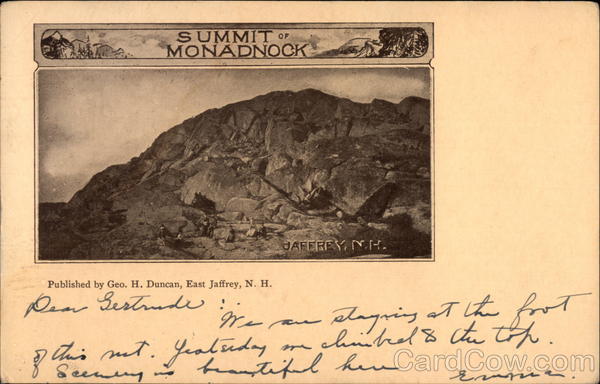 SUMMIT OF
MONADNOCK
JAFFREY, N.H.
Published by Geo. H. Duncan, East Jaffrey, N. H.
Dear Gertrude!
We are staying at the foot
of this mt. Yesterday we climbed to the top.
Scenery is beautiful here Emma.
CardCow.com